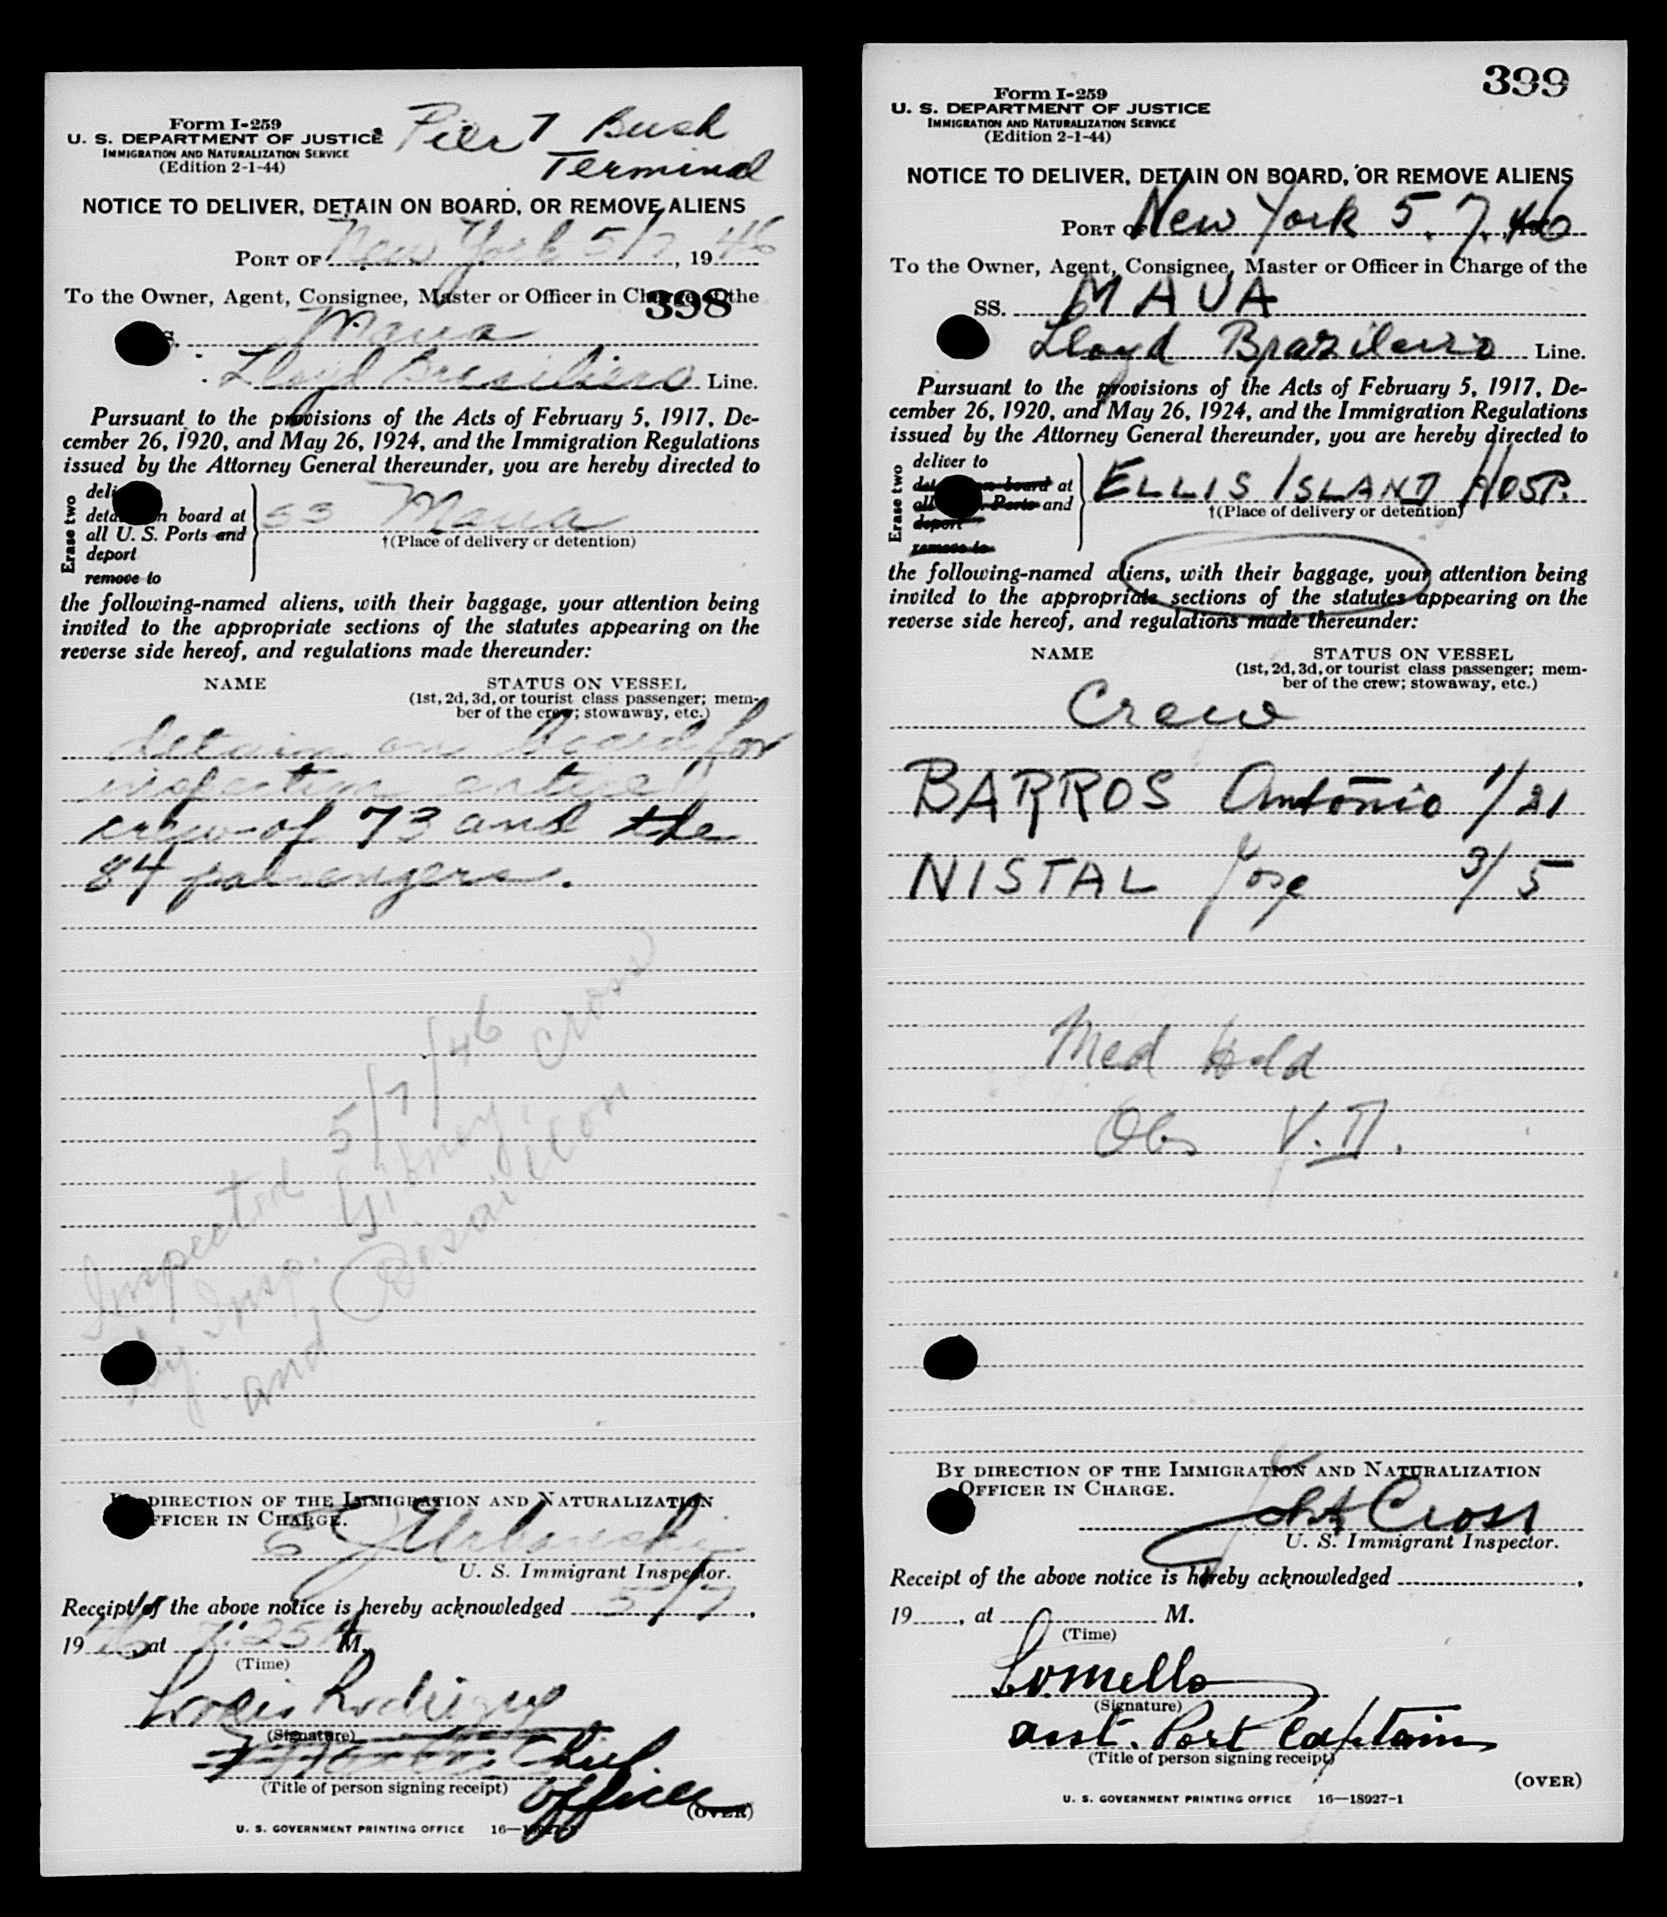 Form I-259
U. S. DEPARTMENT OF JUSTICE
IMMIGRATION AND NATURALIZATION SERVICE
(Edition 2-1-44)
Pier 7 Bush
Terminal
NOTICE TO DELIVER, DETAIN ON BOARD, OR REMOVE ALIENS
PORT OF New York 5/7, 1946
To the Owner, Agent, Consignee, Master or Officer in Charge of the
398
Maua
Lloyd Brasiliero Line.
Pursuant to the provisions of the Acts of February 5, 1917, De-
cember 26, 1920, and May 26, 1924, and the Immigration Regulations
issued by the Attorney General thereunder, you are hereby directed to
Erase two
board at
all U. S. Ports and
deport
remove to
SS Maua
†(Place of delivery or detention)
the following-named aliens, with their baggage, your attention being
invited to the appropriate sections of the statutes appearing on the
reverse side hereof, and regulations made thereunder:
NAME STATUS ON VESSEL
(1st, 2d, 3d, or tourist class passenger; mem-
ber of the crew; stowaway, etc.)
detain on board for
inspection entire
crew of 73 and the
84 passengers.
Inspected 5/7/46
by Insp. Gibney, Cross
and
BY DIRECTION OF THE IMMIGRATION AND NATURALIZATION
OFFICER IN CHARGE.
E J Urbanski
U. S. Immigrant Inspector.
Receipt of the above notice is hereby acknowledged 5/7,
1946, at 7:25 A M.
(Time)
Rodrigues
(Signature)
Chief
(Title of person signing receipt) Officer
(OVER)
U. S. GOVERNMENT PRINTING OFFICE
399
Form I-259
U. S. DEPARTMENT OF JUSTICE
IMMIGRATION AND NATURALIZATION SERVICE
(Edition 2-1-44)
NOTICE TO DELIVER, DETAIN ON BOARD, OR REMOVE ALIENS
PORT OF New York 5.7.46
To the Owner, Agent, Consignee, Master or Officer in Charge of the
SS. MAUA
Lloyd Brazileiro Line.
Pursuant to the provisions of the Acts of February 5, 1917, De-
cember 26, 1920, and May 26, 1924, and the Immigration Regulations
issued by the Attorney General thereunder, you are hereby directed to
Erase two
deliver to
board at
all Ports and
deport
remove to
ELLIS ISLAND HOSP.
†(Place of delivery or detention)
the following-named aliens, with their baggage, your attention being
invited to the appropriate sections of the statutes appearing on the
reverse side hereof, and regulations made thereunder:
NAME STATUS ON VESSEL
(1st, 2d, 3d, or tourist class passenger; mem-
ber of the crew; stowaway, etc.)
Crew
BARROS Antonio 1/21
NISTAL Jose 3/5
Med Hold
Obs V.D.
BY DIRECTION OF THE IMMIGRATION AND NATURALIZATION
OFFICER IN CHARGE.
Cross
U. S. Immigrant Inspector.
Receipt of the above notice is hereby acknowledged ,
19 , at M.
(Time)
(Signature)
asst. Port Captain
(Title of person signing receipt)
(OVER)
U. S. GOVERNMENT PRINTING OFFICE 16—18927-1